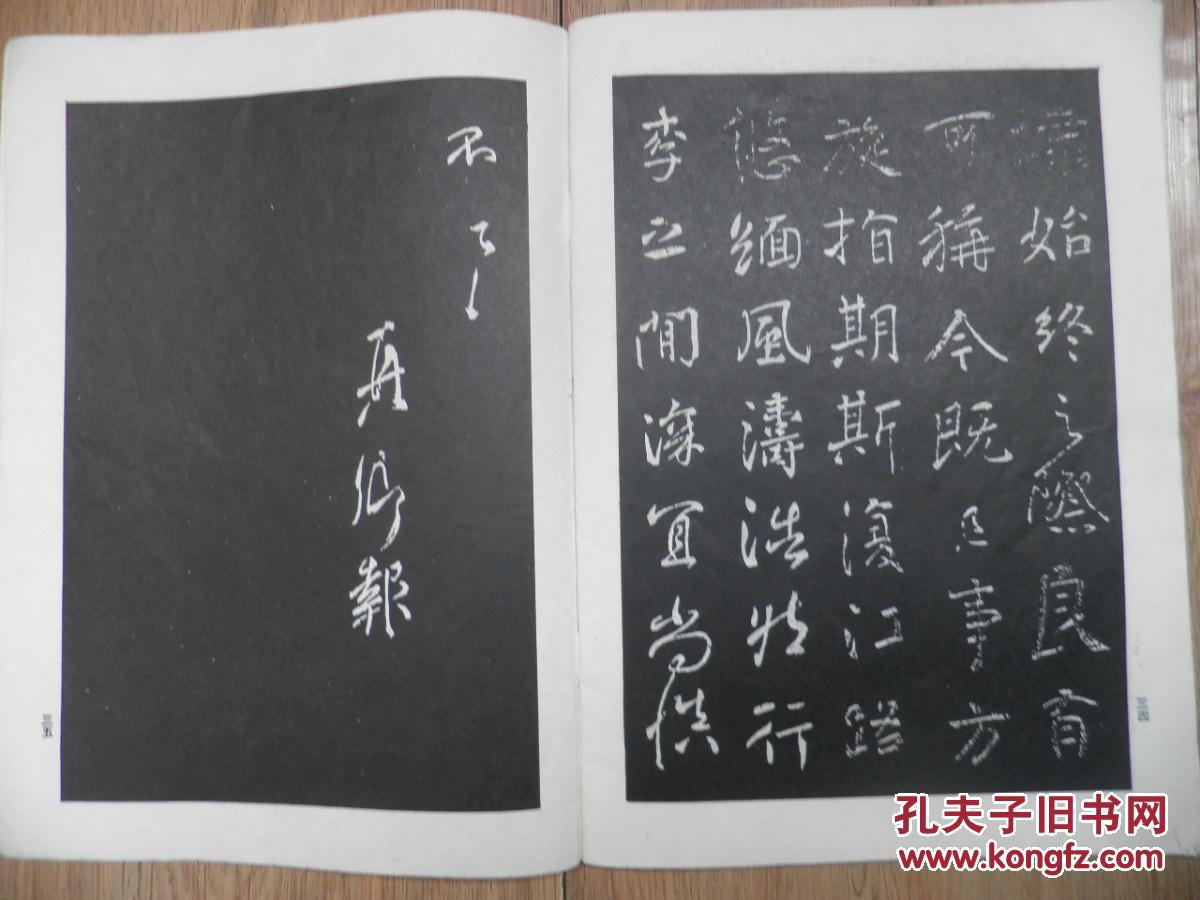 績始終之際良有
可稱今既足事方
旋指期斯復江路
悠緬風濤浩然行
李之間深宜尚慎
不
具
真卿報
三四
三五
孔夫子旧书网
www.kongfz.com